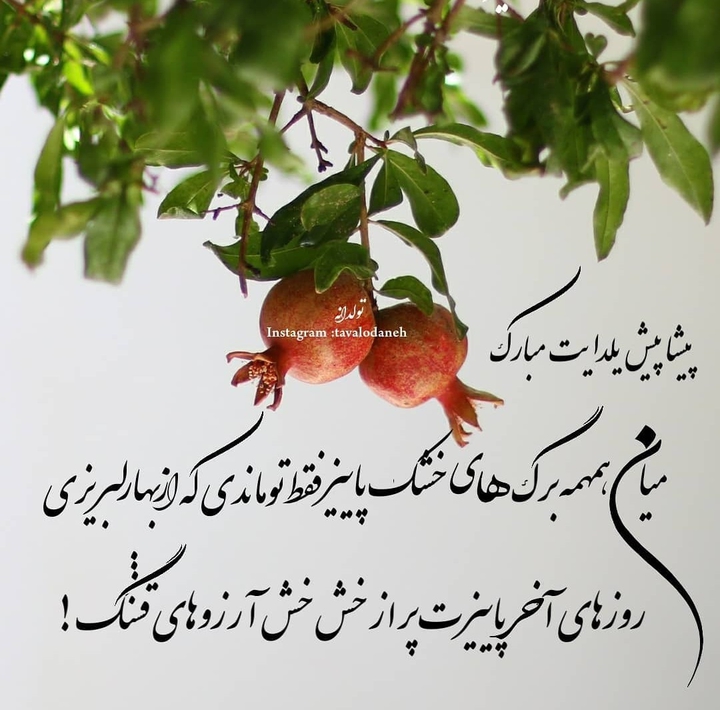 تولدانه
Instagram :tavalodaneh
پیشاپیش یلدایت مبارک
میان همهمه برگ های خشک پاییز فقط تو ماندی که از بهار لبریزی
روزهای آخر پاییزت پر از خش خش آرزوهای قشنگ !